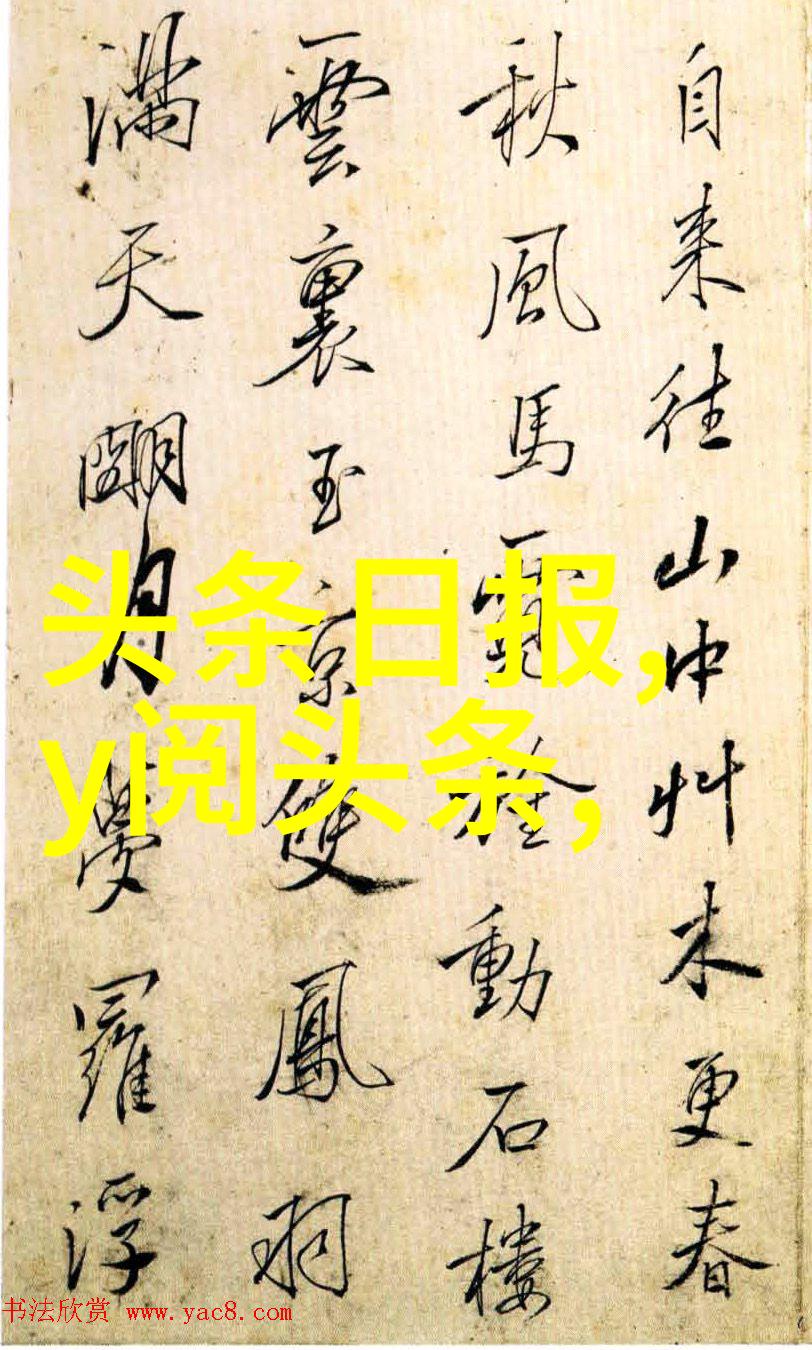 自来往山中艸木更春
秋風馬霓旌動石樓
雲裏玉京雙鳳羽
滿天明月夢羅浮
头条日报,
y阅头条,
书法欣赏 www.yac8.com